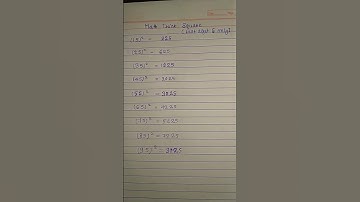 Math Trick Square
(15)² = 225
(25)² = 625
(35)² = 1225
(45)² = 2025
(55)² = 3025
(65)² = 4225
(75)² = 5625
(85)² = 7225
(95)² = 9025